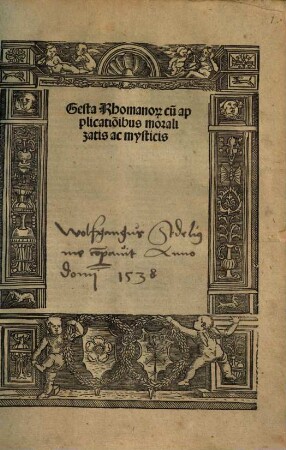 Gesta Rhomanoꝝ cū ap
plicatiōibus morali
zatis ac mysticis
Wolfgangus Sedeliꝰ
me cōpauit Anno
domj 1538